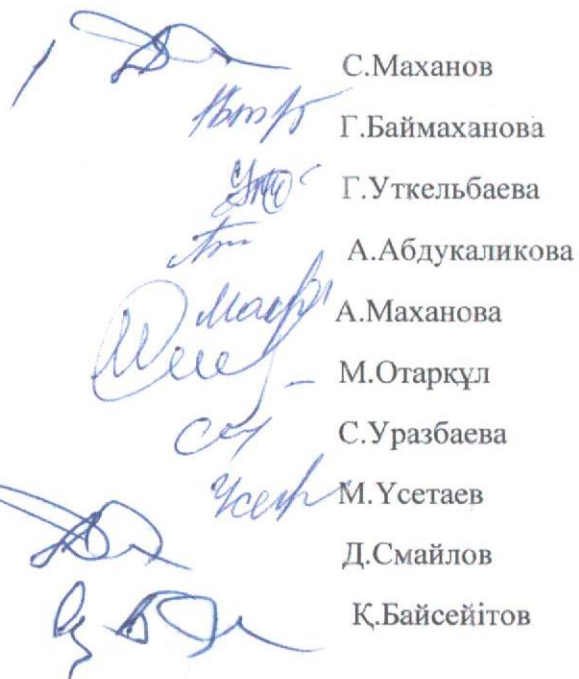 С.Маханов
Г.Баймаханова
Г.Уткельбаева
А.Абдукаликова
А.Маханова
М.Отарқұл
С.Уразбаева
М.Үсетаев
Д.Смайлов
Қ.Байсейітов